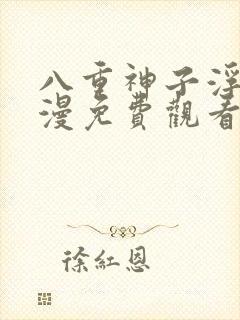 八重神子浮
漫免費觀看
徐紅恩